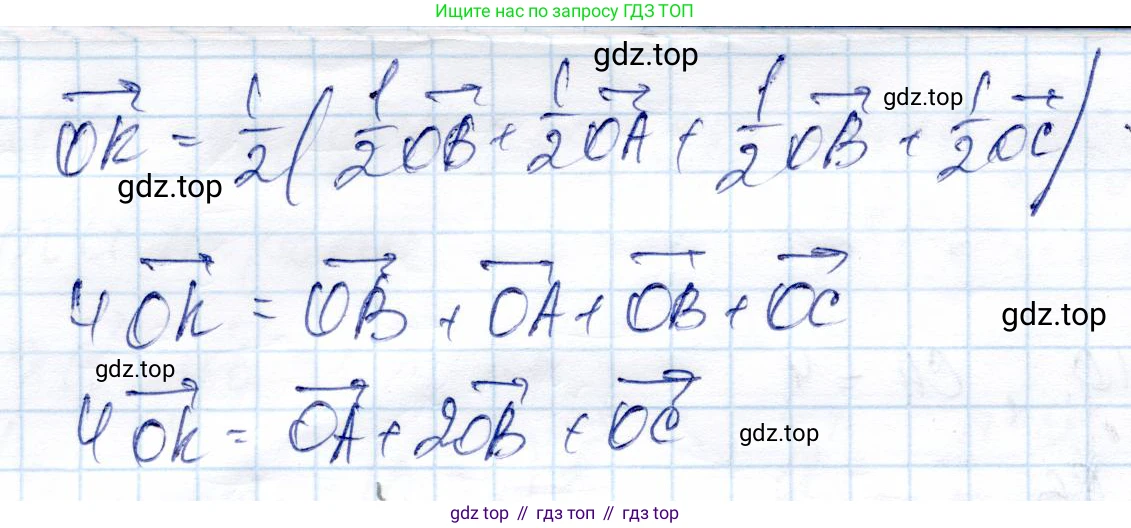 Ищите нас по запросу ГДЗ ТОП
gdz.top
gdz.top
OK = 1/2 ( 1/2 OB + 1/2 OA + 1/2 OB + 1/2 OC )
gdz.top
4 OK = OB + OA + OB + OC
gdz.top
gdz.top
4 OK = OA + 2OB + OC
gdz.top
gdz top // гдз топ // гдз top